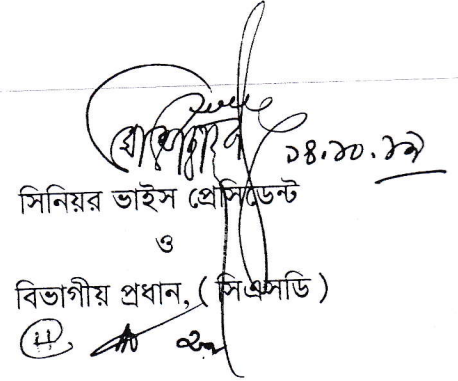 ১৪.১০.১৯
সিনিয়র ভাইস প্রেসিডেন্ট
ও
বিভাগীয় প্রধান, ( সিএসডি )